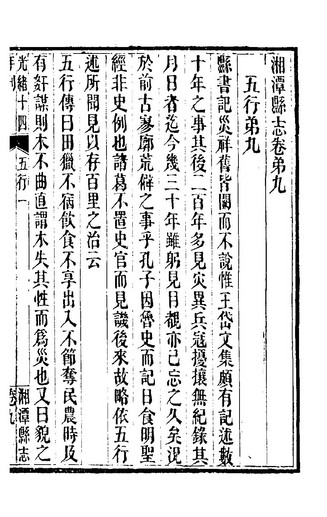 湘潭縣志卷弟九
五行弟九
縣書記災祥舊皆闕而不說惟王岱文集頗有記述數
十年之事其後二百年多見災異兵冦擾攘無紀錄其
月日者迄今幾三十年雖躬見目覩亦已忘之久矣況
於前古寥廓荒僻之事乎孔子因魯史而記日食明聖
經非史例也諸葛不置史官而見譏後來故略依五行
述所聞見以存百里之治云
五行傳曰田獵不宿飲食不享出入不節奪民農時及
有姧謀則木不曲直謂木失其性而爲災也又曰貌之
光緒十四 五行一
湘潭縣志